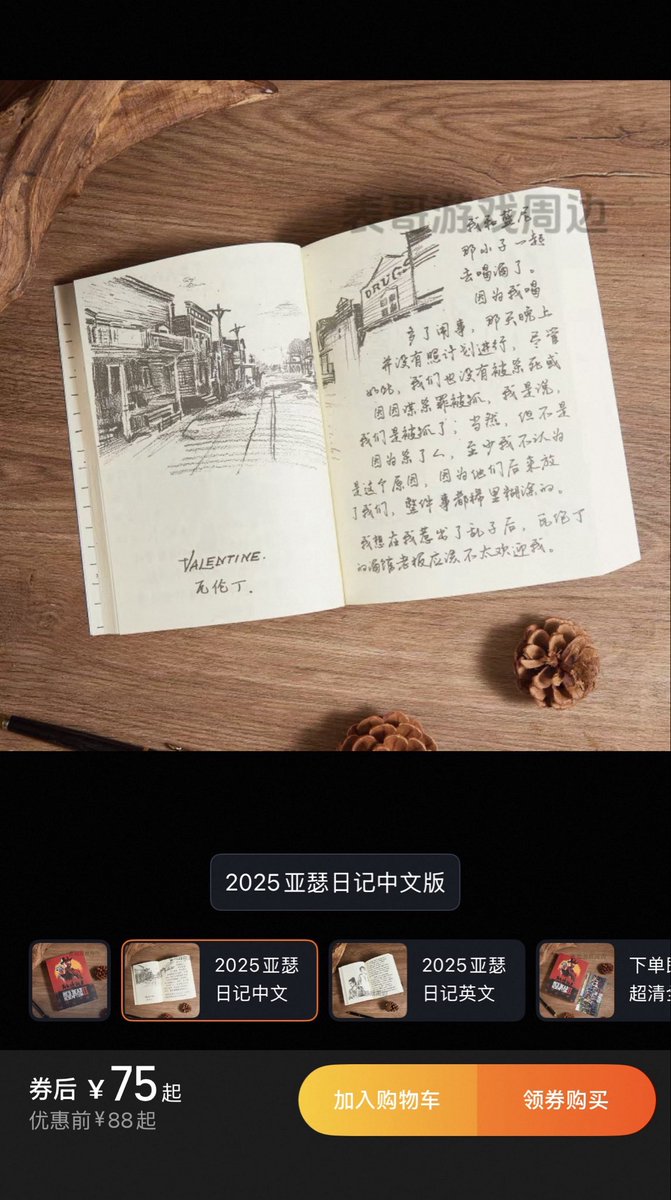 表哥游戏周边
DRUGS
VALENTINE.
瓦伦丁.
我和蓝尼
那小子一起
去喝酒了。
因为我喝
多了闹事，那天晚上
并没有照计划进行，尽管
如此，我们也没有被杀死或
因因谋杀罪被抓，我是说，
我们是被抓了；当然，但不是
因为杀了人，至少我不认为
是这个原因，因为他们后来放
了我们，整件事都稀里糊涂的。
我想在我惹出了乱子后，瓦伦丁
的酒馆老板应该不太欢迎我。
2025亚瑟日记中文版
2025亚瑟
日记中文
2025亚瑟
日记英文
下单
超清
券后 ¥75起
优惠前¥88起
加入购物车
领券购买